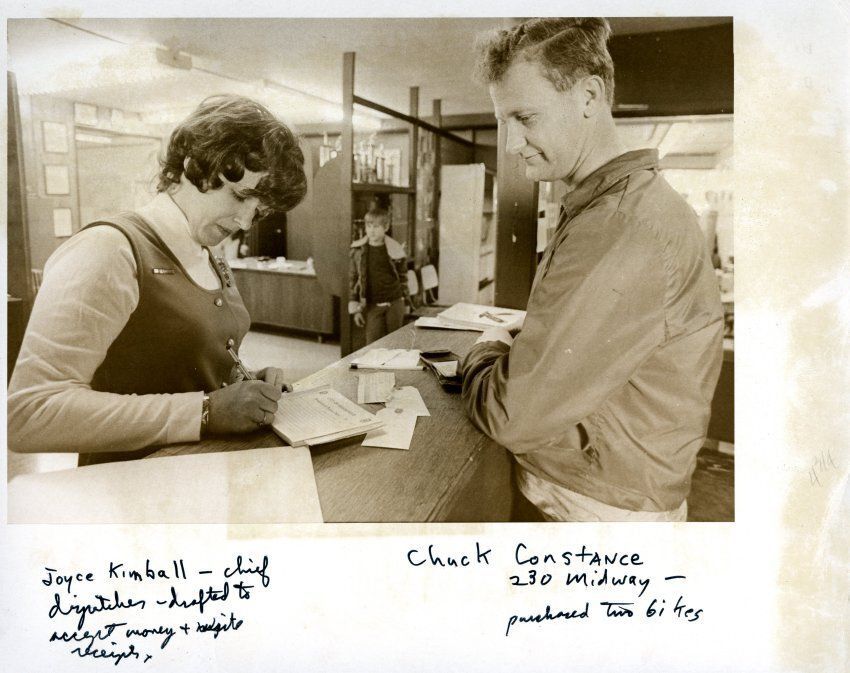 Joyce Kimball – chief
dispatcher – drafted to
accept money + write
receipts,
Chuck Constance
230 Midway –
purchased two bikes